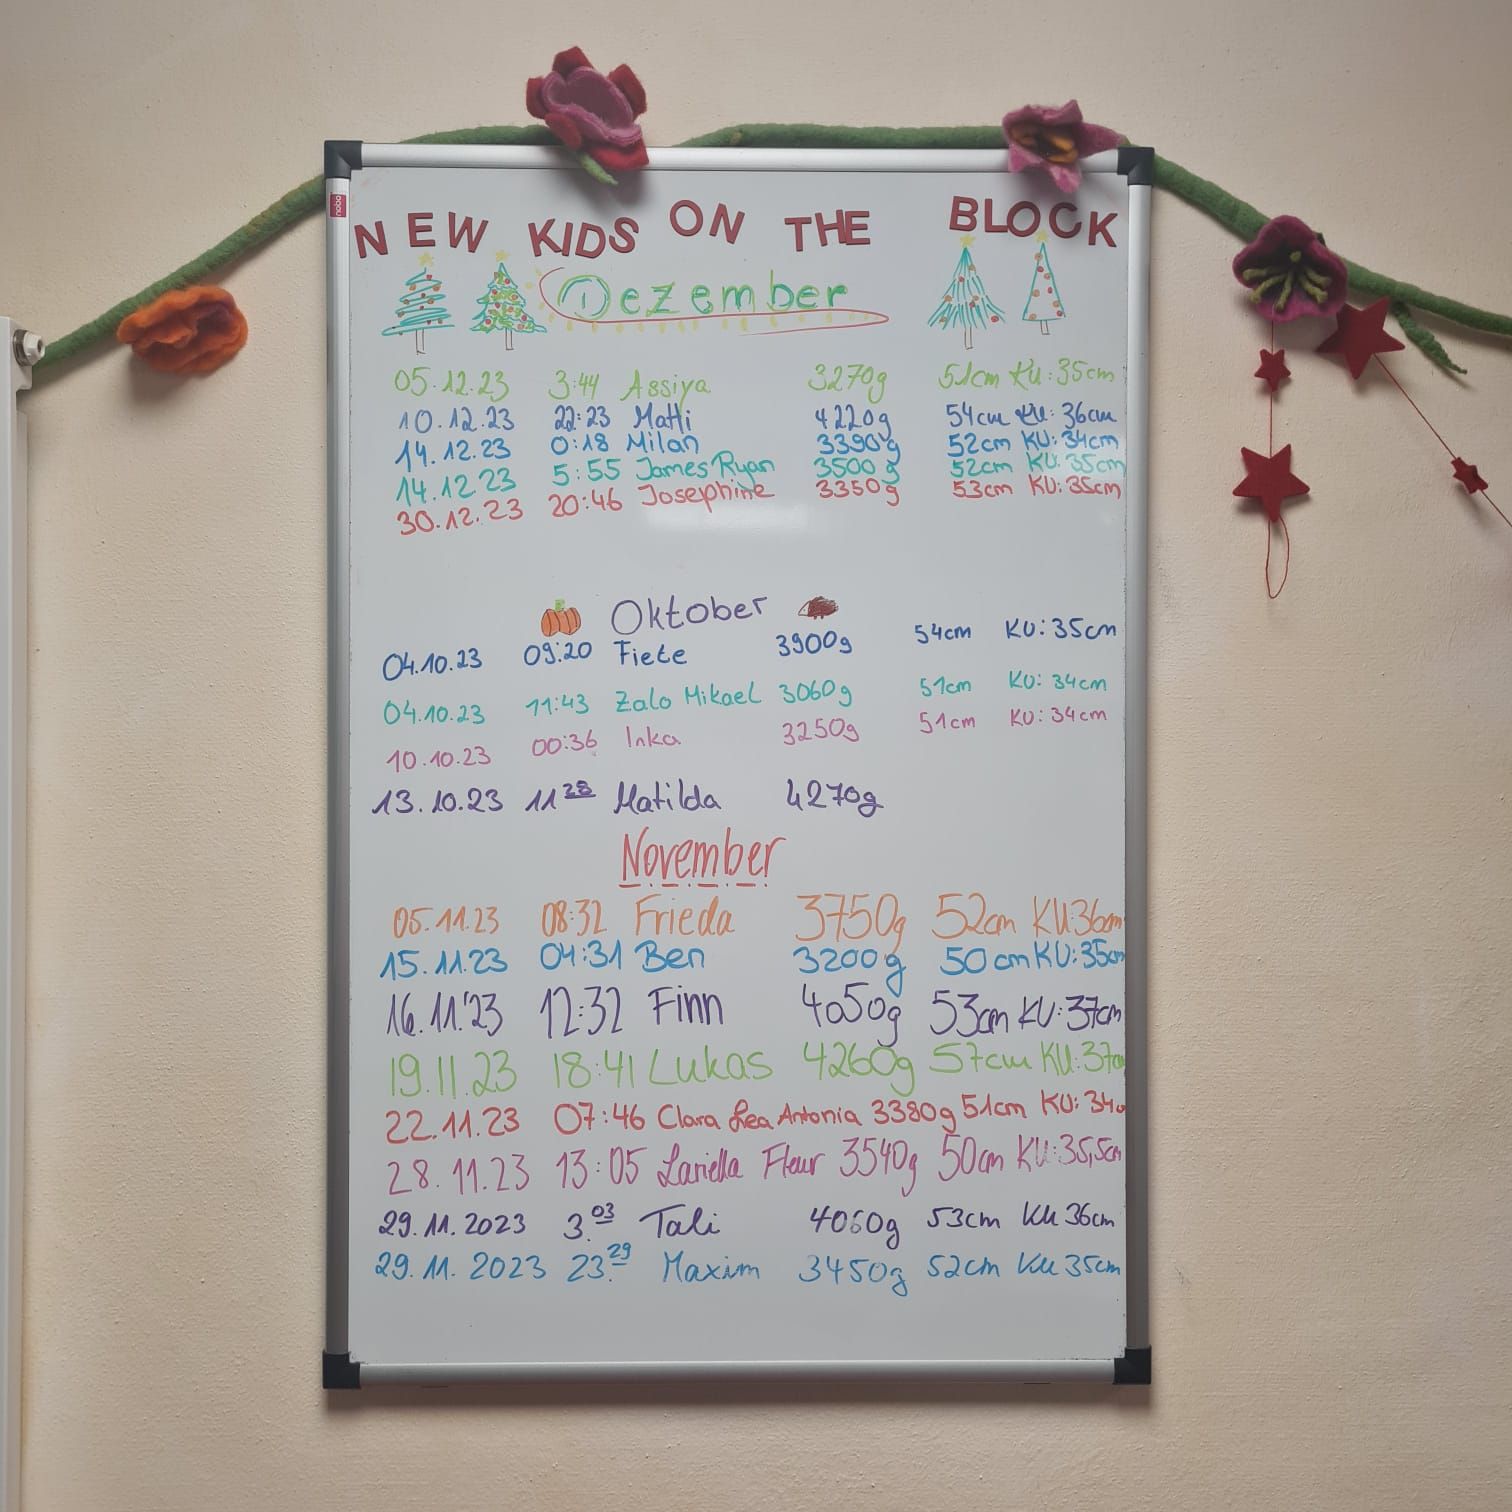 nobo
NEW KIDS ON THE BLOCK
Dezember
05.12.23 3:44 Assiya 3270g 51cm KU:35cm
10.12.23 22:23 Matti 4220g 54cm KU: 36cm
14.12.23 0:18 Milan 3390g 52cm KU: 34cm
14.12.23 5:55 James Ryan 3500g 52cm KU: 35cm
30.12.23 20:46 Josephine 3350g 53cm KU: 35cm
Oktober
04.10.23 09:20 Fiete 3900g 54cm KU: 35cm
04.10.23 11:43 Zalo Mikael 3060g 51cm KU: 34cm
10.10.23 00:36 Inka 3250g 51cm KU: 34cm
13.10.23 11 28 Matilda 4270g
November
05.11.23 08:32 Frieda 3750g 52cm KU:36cm
15.11.23 04:31 Ben 3200g 50cm KU:35cm
16.11.'23 12:32 Finn 4050g 53cm KU:37cm
19.11.23 18:41 Lukas 4260g 57cm KU:37cm
22.11.23 07:46 Clara Lea Antonia 3380g 51cm KU: 34c
28.11.23 13:05 Lariella Fleur 3540g 50cm KU:35,5cm
29.11.2023 3.03 Tali 4060g 53cm KU 36cm
29.11.2023 23.29 Maxim 3450g 52cm KU 35cm